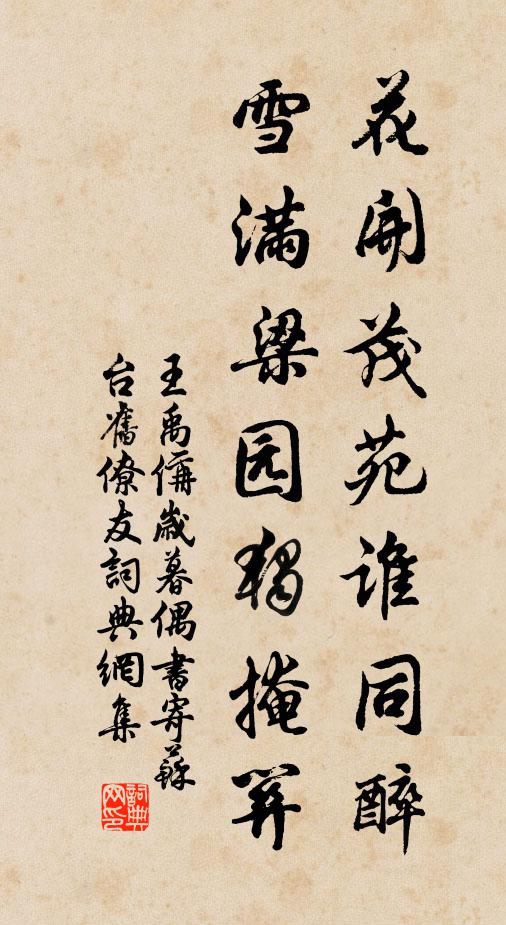 花開茂苑誰同醉
雪滿梁园獨掩關
王禹偁歲暮偶書寄蘇
台舊僚友詞典網集
詞典
网印